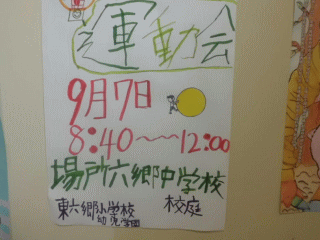 運動会
9月7日
8:40～12:00
場所六郷中学校
校庭
東六郷小学校
幼児学園